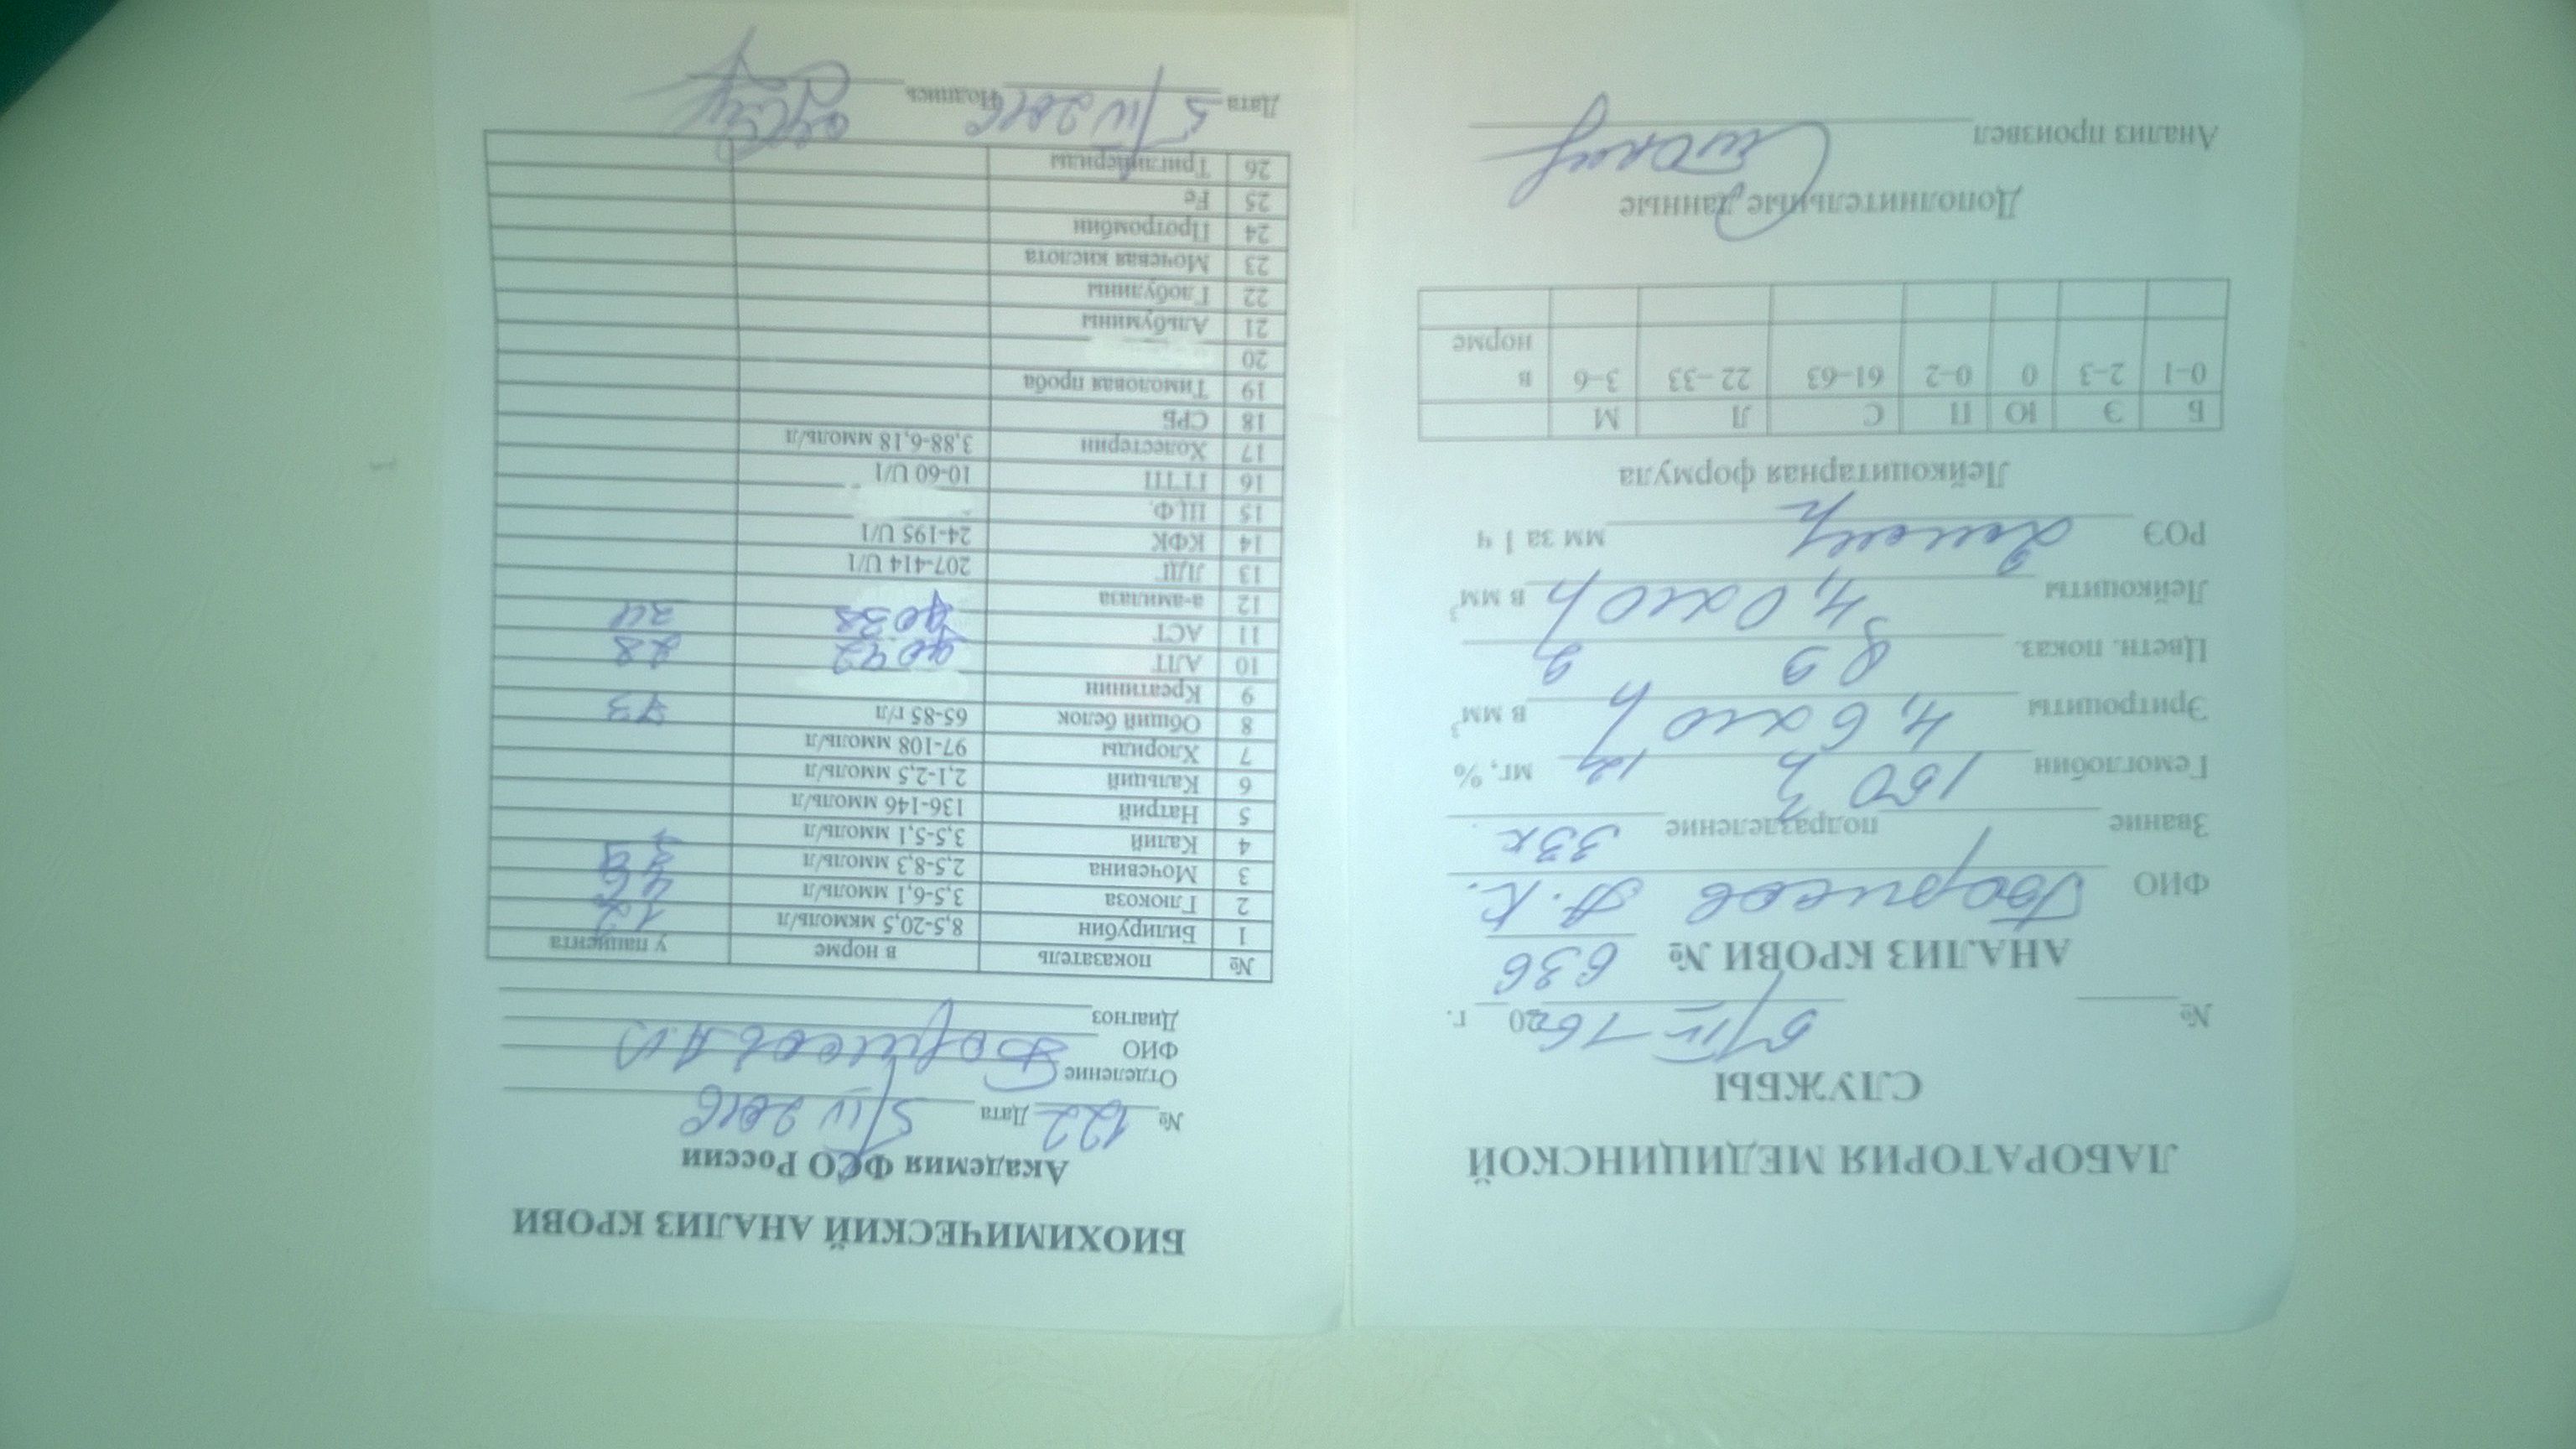 ЛАБОРАТОРИЯ МЕДИЦИНСКОЙ
СЛУЖБЫ
№ 5/IV-16 20 г.
АНАЛИЗ КРОВИ № 636
ФИО Борисов А.К.
Звание подразделение 33к
Гемоглобин 150 мг, %
Эритроциты 4,6 х 10 12/ в мм3
Цветн. показ.
Лейкоциты 4,0 х 10 9/ в мм3
РОЭ мм за 1 ч
Лейкоцитарная формула
Б Э Ю П С Л М
0–1 2–3 0 0–2 61–63 22 –33 3–6 в
норме
Дополнительные данные
Анализ произвел
БИОХИМИЧЕСКИЙ АНАЛИЗ КРОВИ
Академия ФСО России
№ 122 Дата 5/IV 2016
Отделение
ФИО Борисов А.
Диагноз
№ показатель в норме у пациента
1 Билирубин 8,5-20,5 мкмоль/л 12
2 Глюкоза 3,5-6,1 ммоль/л 4,6
3 Мочевина 2,5-8,3 ммоль/л 3,9
4 Калий 3,5-5,1 ммоль/л
5 Натрий 136-146 ммоль/л
6 Кальций 2,1-2,5 ммоль/л
7 Хлориды 97-108 ммоль/л
8 Общий белок 65-85 г/л 73
9 Креатинин
10 АЛТ до 42 28
11 АСТ до 38 24
12 а-амилаза
13 ЛДГ 207-414 U/l
14 КФК 24-195 U/l
15 Щ.Ф.
16 ГГТП 10-60 U/l
17 Холестерин 3,88-6,18 ммоль/л
18 СРБ
19 Тимоловая проба
20
21 Альбумины
22 Глобулины
23 Мочевая кислота
24 Протромбин
25 Fe
26 Триглицериды
Дата 5/IV 2016 Подпись